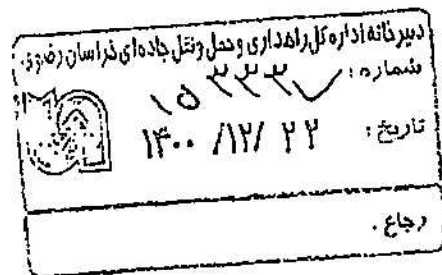 دبیرخانه اداره کل راهداری و حمل ونقل جاده ای خراسان رضوی
شماره : ۱۵۳۳۳۷
تاریخ : ۱۴۰۰ /۱۲/ ۲۲
رجاع .